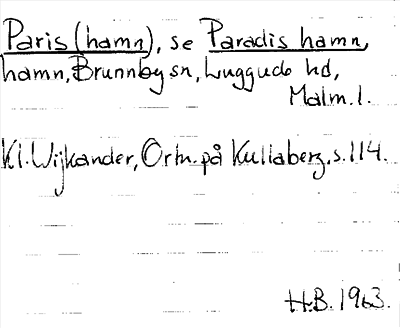 Paris (hamn), se Paradis hamn,
hamn, Brunnby sn, Luggude hd,
Malm. l.
Kl. Wijkander, Ortn. på Kullaberg, s. 114.
H.B. 1963.